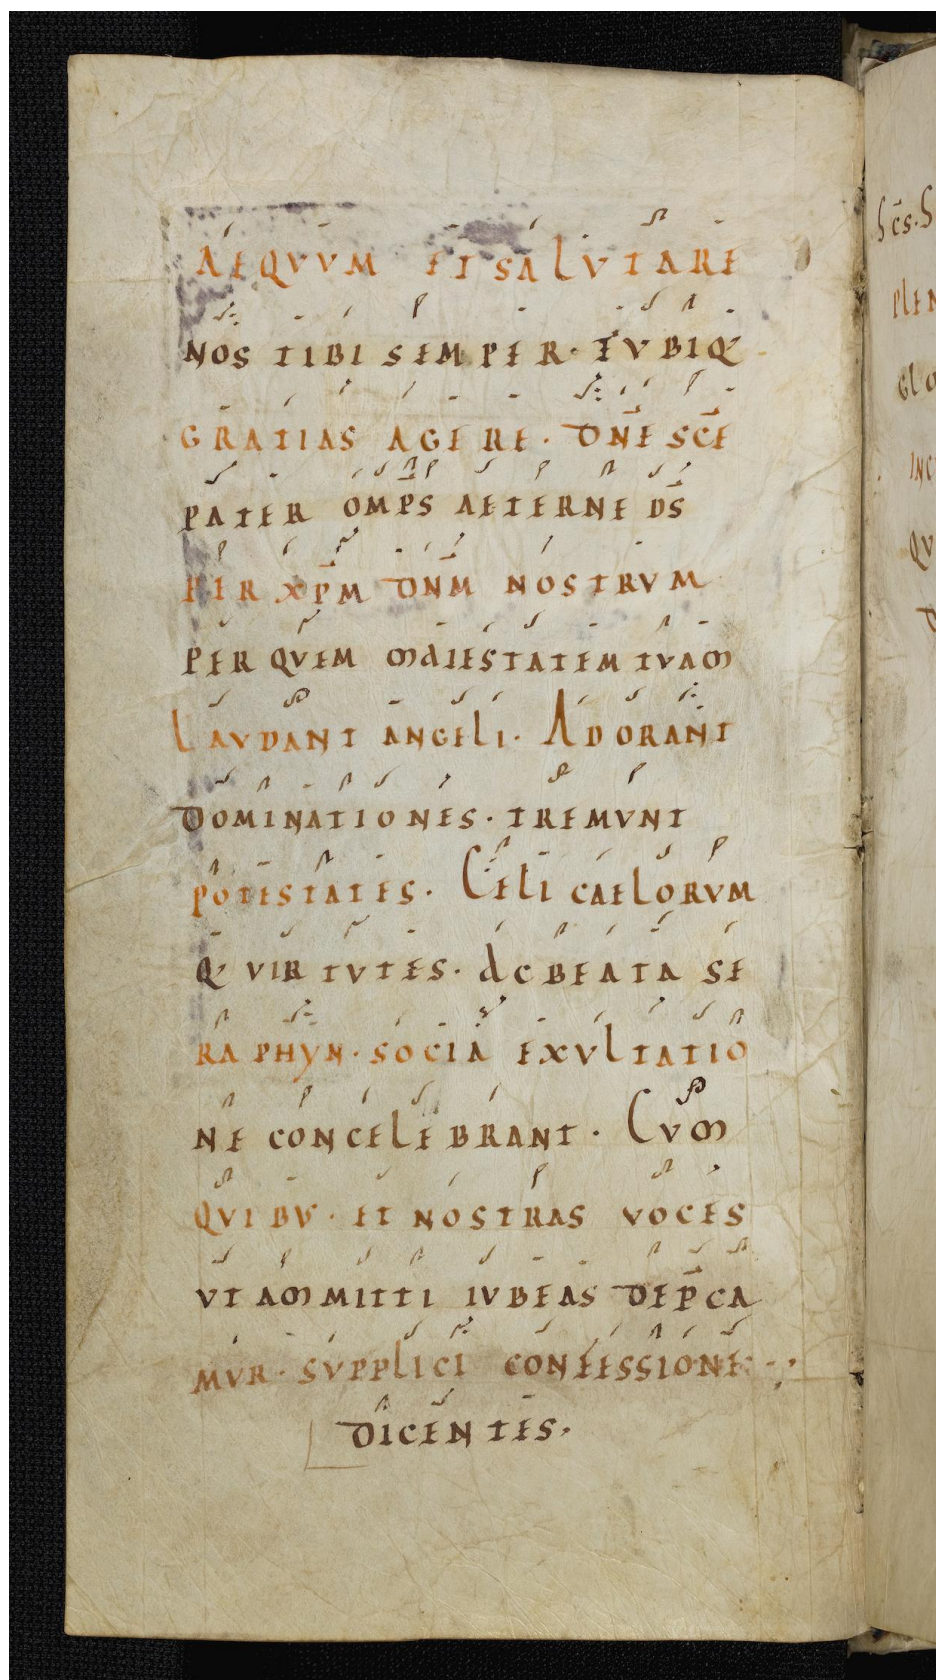 AEQVVM ET SALVTARE
NOS TIBI SEMPER· ET VBIQ·
GRATIAS AGERE· DN̄E SC̄E
PATER OMP̄S AETERNE DS̄
PER XP̄M DN̄M NOSTRVM
PER QVEM MAIESTATEM TVAM
LAVDANT ANGELI· ADORANT
DOMINATIONES· TREMVNT
POTESTATES· CELI CAELORVM
Q· VIRTVTES· AC BEATA SE
RAPHYN· SOCIA EXVLTATIO
NE CONCELEBRANT· CVM
QVIBV· ET NOSTRAS VOCES
VT AMMITTI IVBEAS DEP̄CA
MVR· SVPPLICI CONFESSIONE
DICENTES·
SC̄S· S
PLEN
GLO
INC
QV